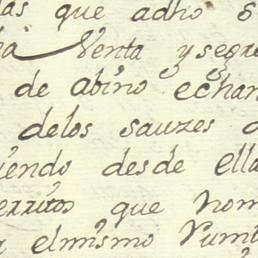 las que adho S
ha Venta y segre
de abino echan
delos sauzes d
iendo desde ella
erritos que nom
elmismo Rumb